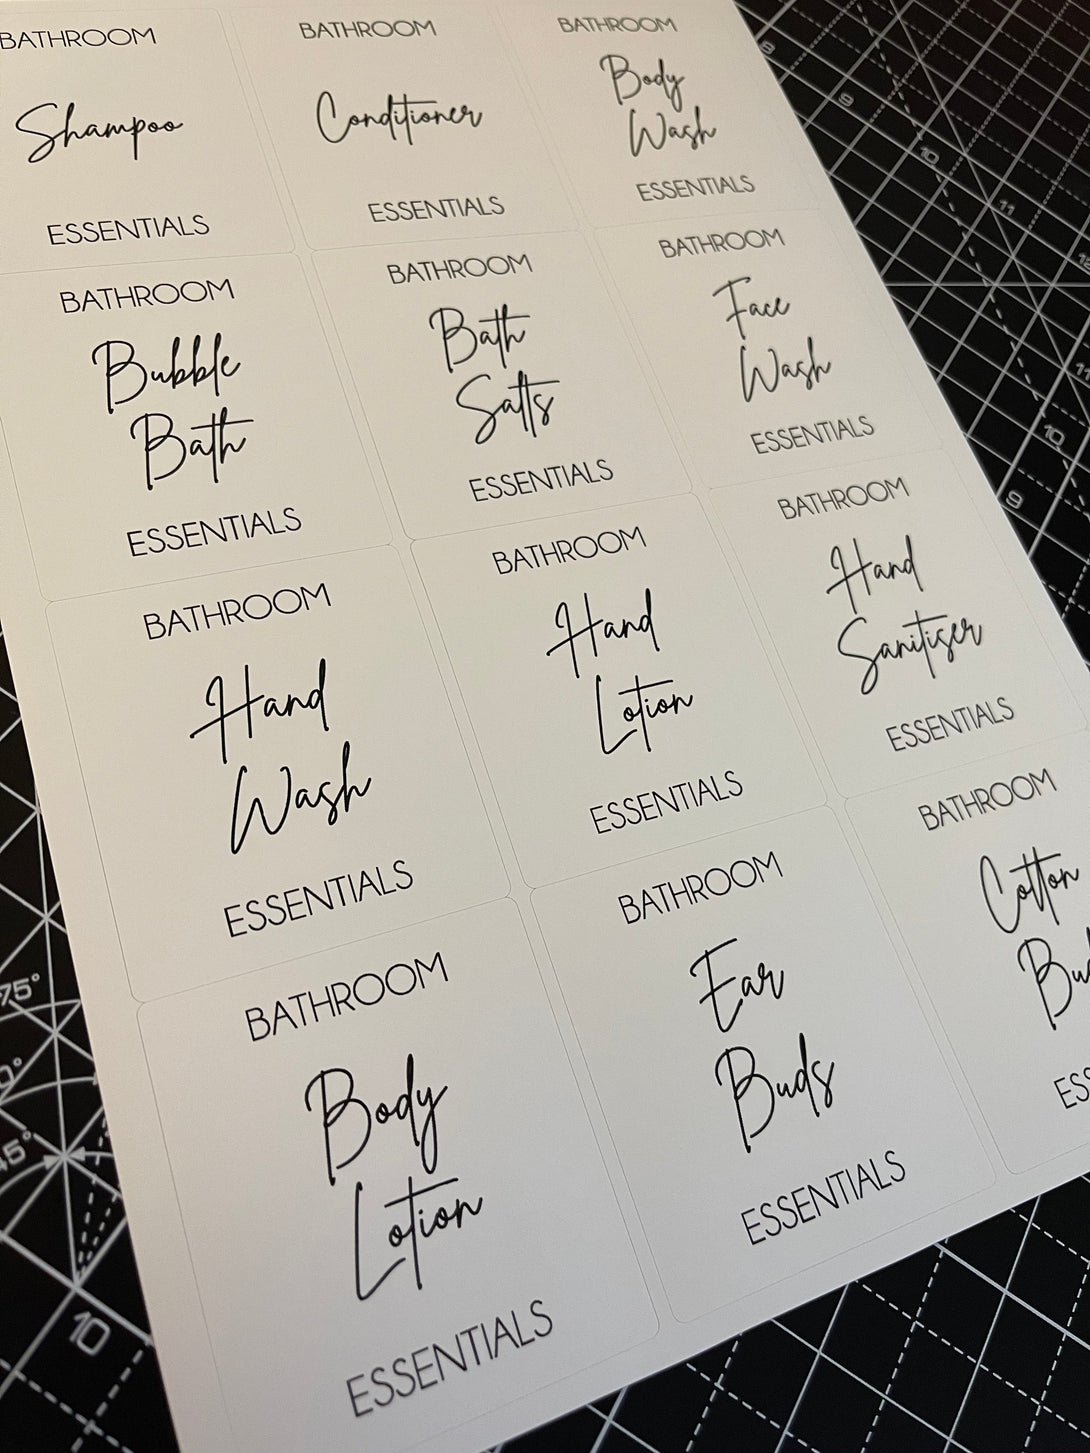 BATHROOM
Shampoo
ESSENTIALS
BATHROOM
Conditioner
ESSENTIALS
BATHROOM
Body
Wash
ESSENTIALS
BATHROOM
Bubble
Bath
ESSENTIALS
BATHROOM
Bath
Salts
ESSENTIALS
BATHROOM
Face
Wash
ESSENTIALS
BATHROOM
Hand
Wash
ESSENTIALS
BATHROOM
Hand
Lotion
ESSENTIALS
BATHROOM
Hand
Sanitiser
ESSENTIALS
BATHROOM
Body
Lotion
ESSENTIALS
BATHROOM
Ear
Buds
ESSENTIALS
BATHROOM
Cotton
8
9
10
11
11
10
9
75°
45°
10